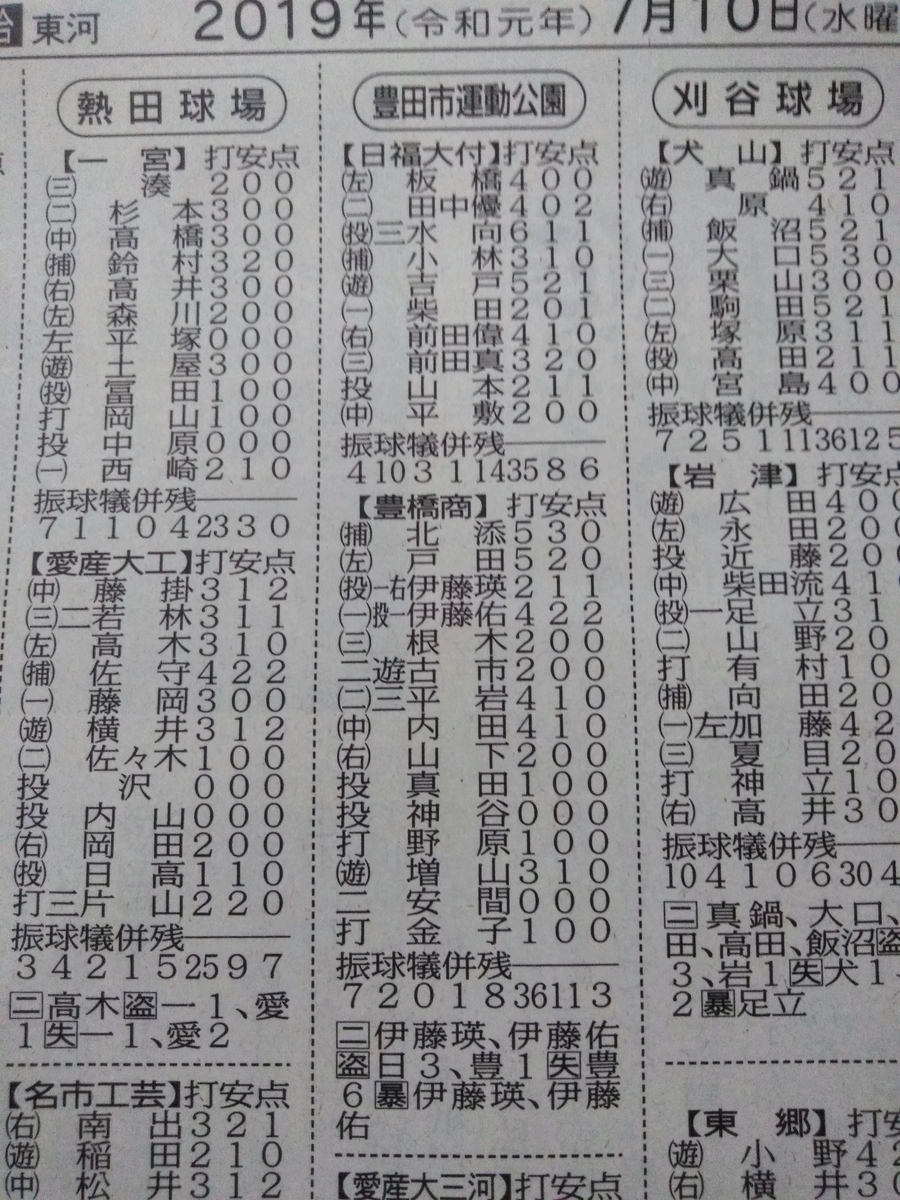 東河 2019年(令和元年) 7月10日(水曜
熱田球場
【一 宮】打安点
㊂ 湊 2 0 0
㊁ 杉本 3 0 0
㊥ 高橋 3 0 0
(捕) 鈴村 3 2 0
㊨ 高井 3 0 0
㊧ 森川 2 0 0
左 平塚 0 0 0
(遊) 土屋 3 0 0
(投) 冨田 1 0 0
打 岡山 1 0 0
投 中原 0 0 0
㊀ 西崎 2 1 0
振球犠併残
7 1 1 0 4 23 3 0
【愛産大工】打安点
㊥ 藤掛 3 1 2
㊂二 若林 3 1 1
㊧ 高木 3 1 0
(捕) 佐守 4 2 2
㊀ 藤岡 3 0 0
(遊) 横井 3 1 2
㊁ 佐々木 1 0 0
投 沢 0 0 0
投 内山 0 0 0
㊨ 岡田 2 0 0
(投) 日高 1 1 0
打三 片山 2 2 0
振球犠併残
3 4 2 1 5 25 9 7
二高木盗一1、愛
1失一1、愛2
【名市工芸】打安点
㊨ 南出 3 2 1
(遊) 稲田 2 1 0
㊥ 松井 3 1 2
豊田市運動公園
【日福大付】打安点
㊧ 板橋 4 0 0
㊁ 田中優 4 0 2
(投)三 水向 6 1 1
(捕) 小林 3 1 0
(遊) 吉戸 5 2 1
㊀ 柴田 2 0 1
㊨ 前田偉 4 1 0
㊂ 前田真 3 2 0
投 山本 2 1 1
㊥ 平敷 2 0 0
振球犠併残
4 10 3 1 14 35 8 6
【豊橋商】打安点
(捕) 北添 5 3 0
㊧ 戸田 5 2 0
(投)一右 伊藤瑛 2 1 1
㊀投一 伊藤佑 4 2 2
㊂ 根木 2 0 0
二遊 古市 2 0 0
㊁三 平岩 4 1 0
㊥ 内田 4 1 0
㊨ 山下 2 0 0
投 真田 1 0 0
投 神谷 0 0 0
打 野原 1 0 0
(遊) 増山 3 1 0
二 安間 0 0 0
打 金子 1 0 0
振球犠併残
7 2 0 1 8 36 11 3
二伊藤瑛、伊藤佑
盗日3、豊1失豊
6暴伊藤瑛、伊藤
佑
【愛産大三河】打安点
刈谷球場
【犬 山】打安点
(遊) 真鍋 5 2 1
㊨ 原 4 1 0
(捕) 飯沼 5 2 1
㊀ 大口 5 3 0
㊂ 栗山 3 0 0
㊁ 駒田 5 2 1
㊧ 塚原 3 1 1
(投) 高田 2 1 1
㊥ 宮島 4 0 0
振球犠併残
7 2 5 1 11 36 12 5
【岩 津】打安点
(遊) 広田 4 0 0
㊧ 永田 2 0 0
投 近藤 2 0 0
㊥ 柴田流 4 1
(投)一 足立 3 1
㊁ 山野 2 0
打 有村 1 0
(捕) 向田 2 0
㊀左 加藤 4 2
㊂ 夏目 2 0
打 神立 1 0
㊨ 高井 3 0
振球犠併残
10 4 1 0 6 30 4
二真鍋、大口、
田、高田、飯沼盗
3、岩1失犬1
2暴足立
【東 郷】打安
(遊) 小野 4 2
㊨ 横井 3